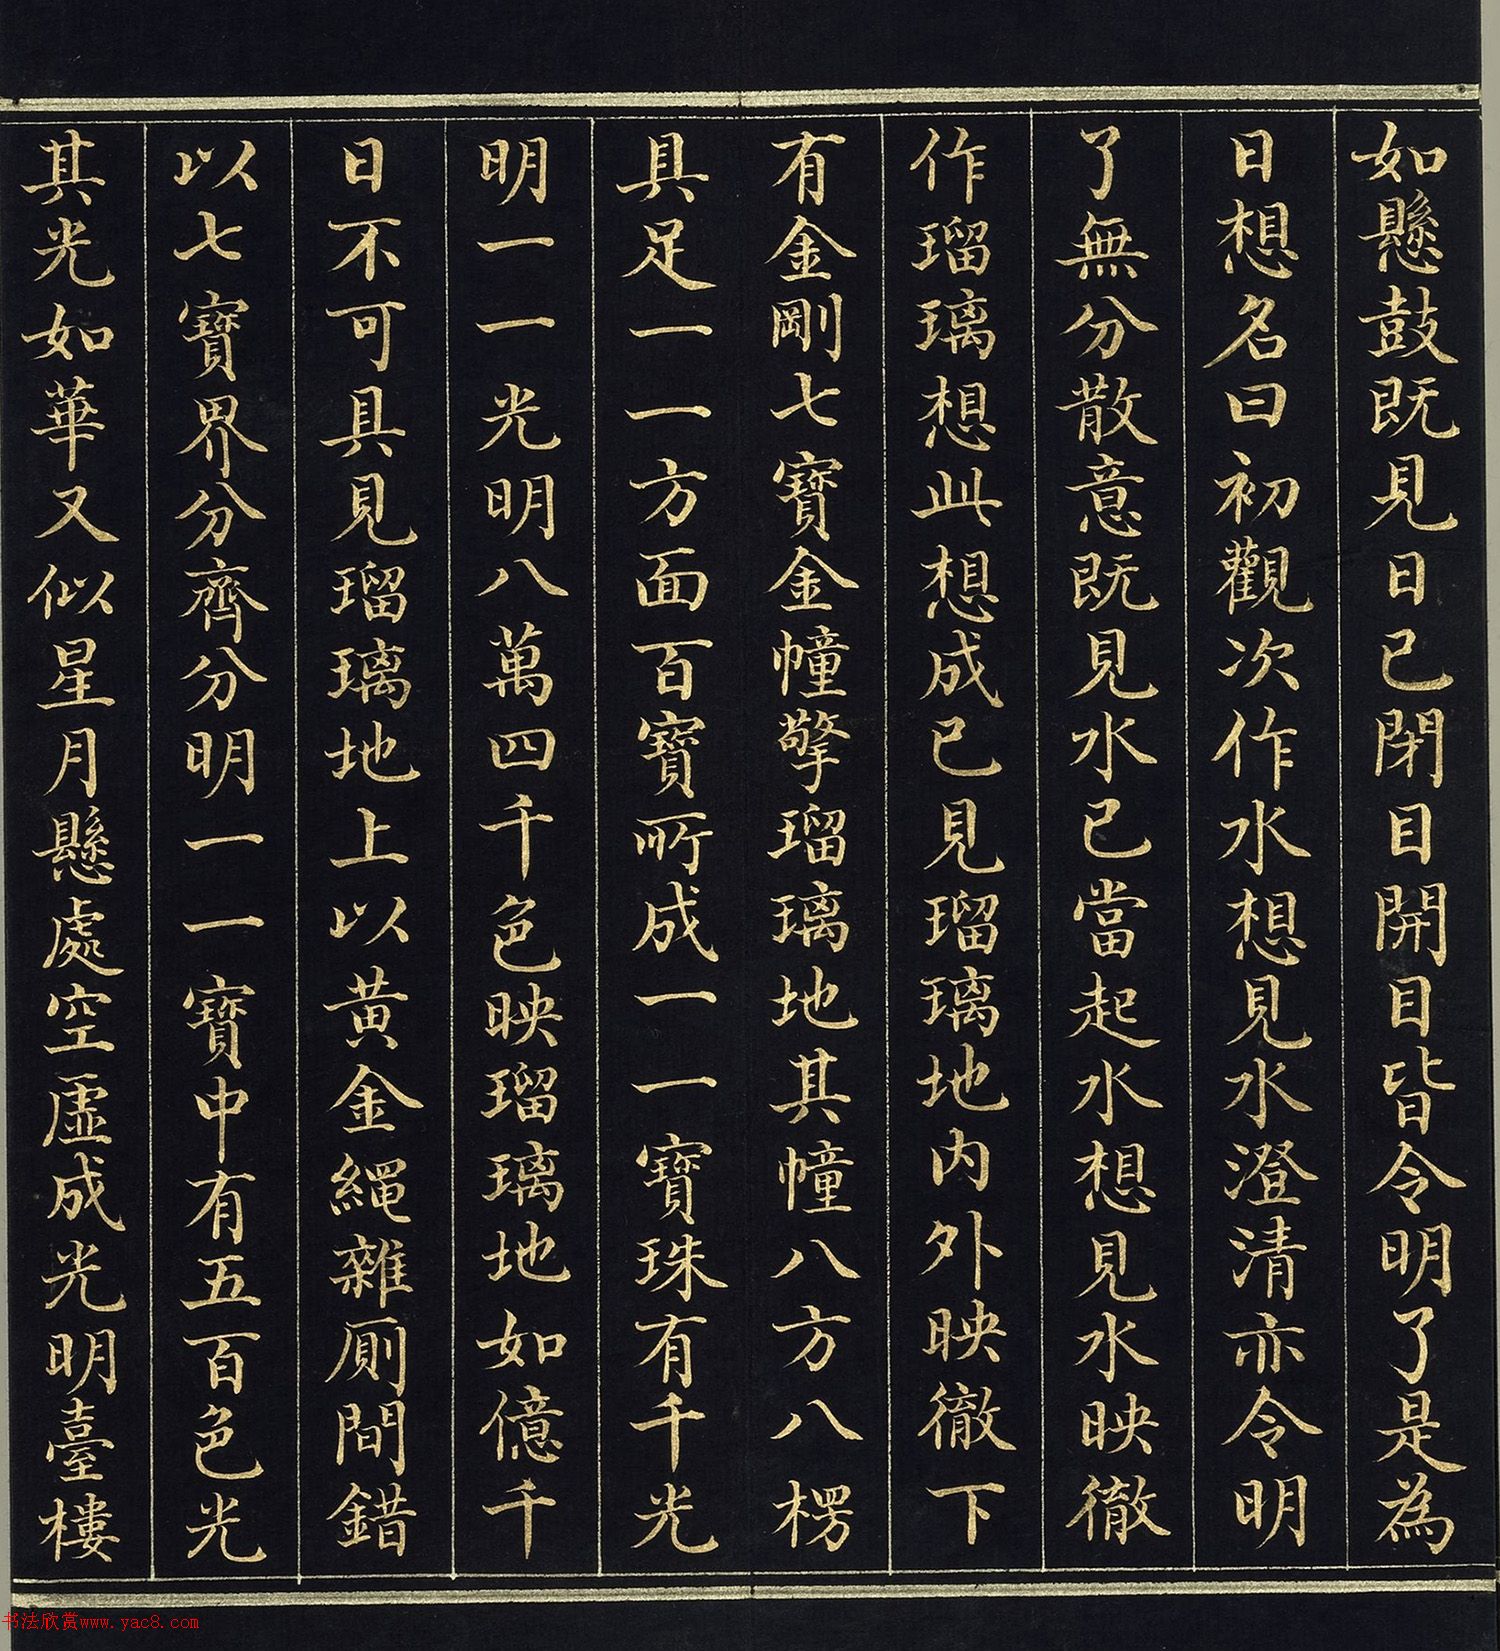 如懸鼓既見日已閉目開目皆令明了是為
日想名曰初觀次作水想見水澄清亦令明
了無分散意既見水已當起水想見水映徹
作瑠璃想此想成已見瑠璃地內外映徹下
有金剛七寶金幢擎瑠璃地其幢八方八楞
具足一一方面百寶所成一一寶珠有千光
明一一光明八萬四千色映瑠璃地如億千
日不可具見瑠璃地上以黃金繩雜廁間錯
以七寶界分齊分明一一寶中有五百色光
其光如華又似星月懸處空虛成光明臺樓
书法欣赏www.yac8.com